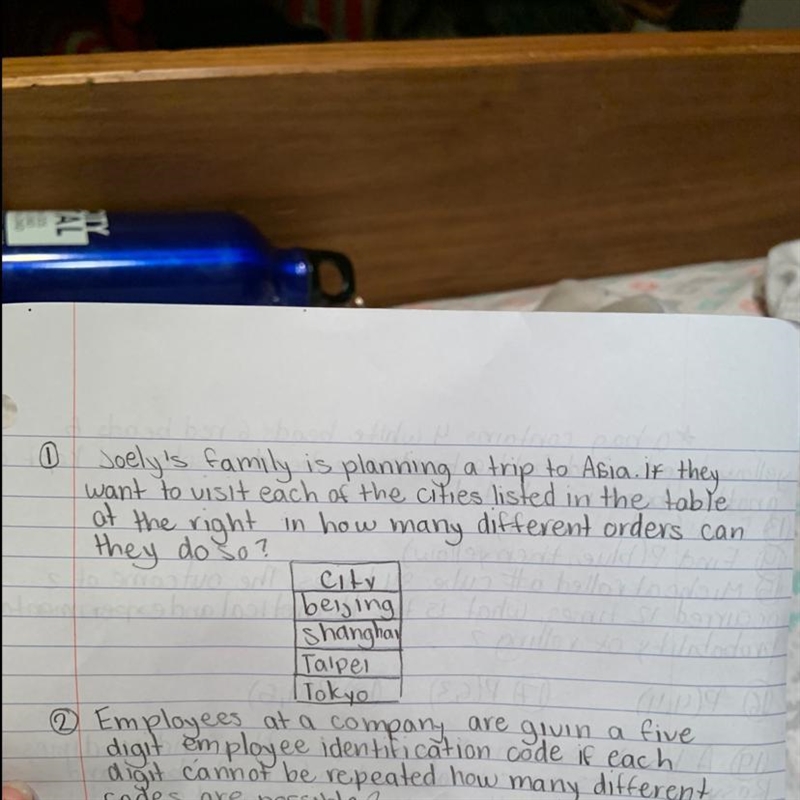 ITY
AL
① Joely's family is planning a trip to Asia. if they
want to visit each of the cities listed in the table
at the right in how many different orders can
they do so?
City
beijing
Shanghai
Taipei
Tokyo
② Employees at a company are givin a five
digit employee identification code if each
digit cannot be repeated how many different
codes are possible?